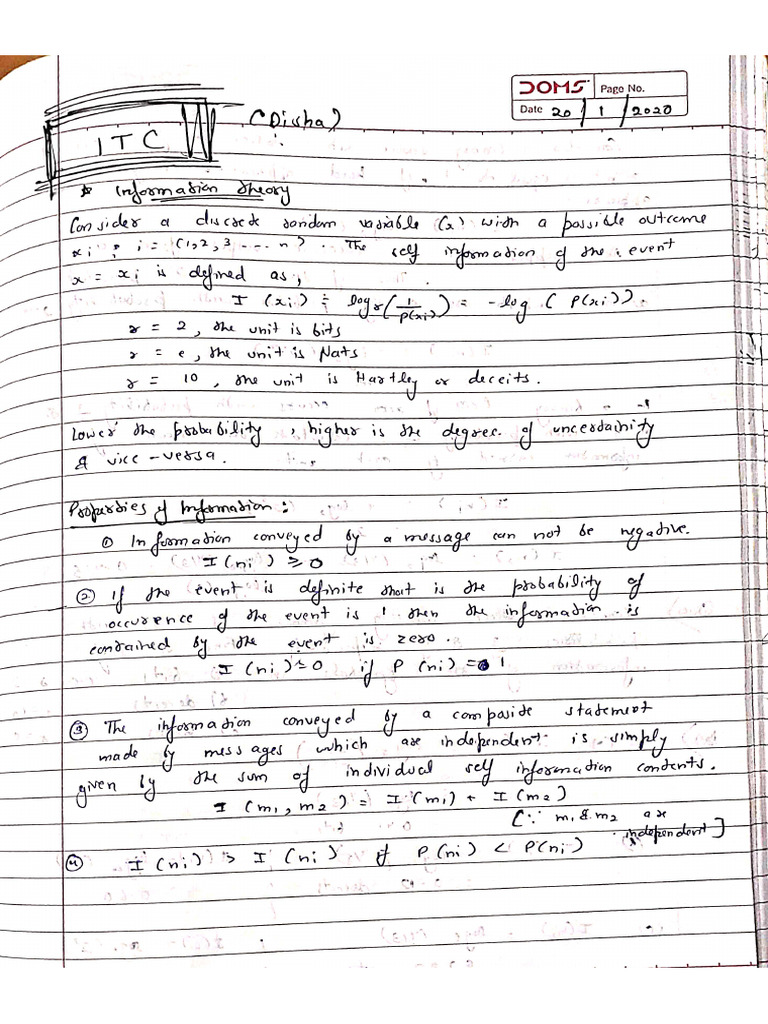 DOMS Page No.
Date 20/1/2020
(Disha)
ITC
* Information theory
Consider a discrete random variable (x) with a possible outcome
xi ; i = (1,2,3 --- n). The self information of the event
x = xi is defined as,
I (xi) = logr(1/P(xi)) = -log ( P(xi)).
r = 2, the unit is bits
r = e, the unit is Nats
r = 10, the unit is Hartley or deceits.
Lower the probability, higher is the degree of uncertainity
& vice-versa.
Properties of Information:
① Information conveyed by a message can not be negative.
I (ni) ≥ 0
② If the event is definite that is the probability of
occurence of the event is 1 then the information is
contained by the event is zero.
I (ni) = 0 if P (ni) = 1
③ The information conveyed by a composite statement
made by messages which are independent is simply
given by the sum of individual self information contents.
I (m1, m2) = I (m1) + I (m2)
[∵ m1 & m2 are
independent]
④ I (ni) > I (ni) if P (ni) < P(ni)